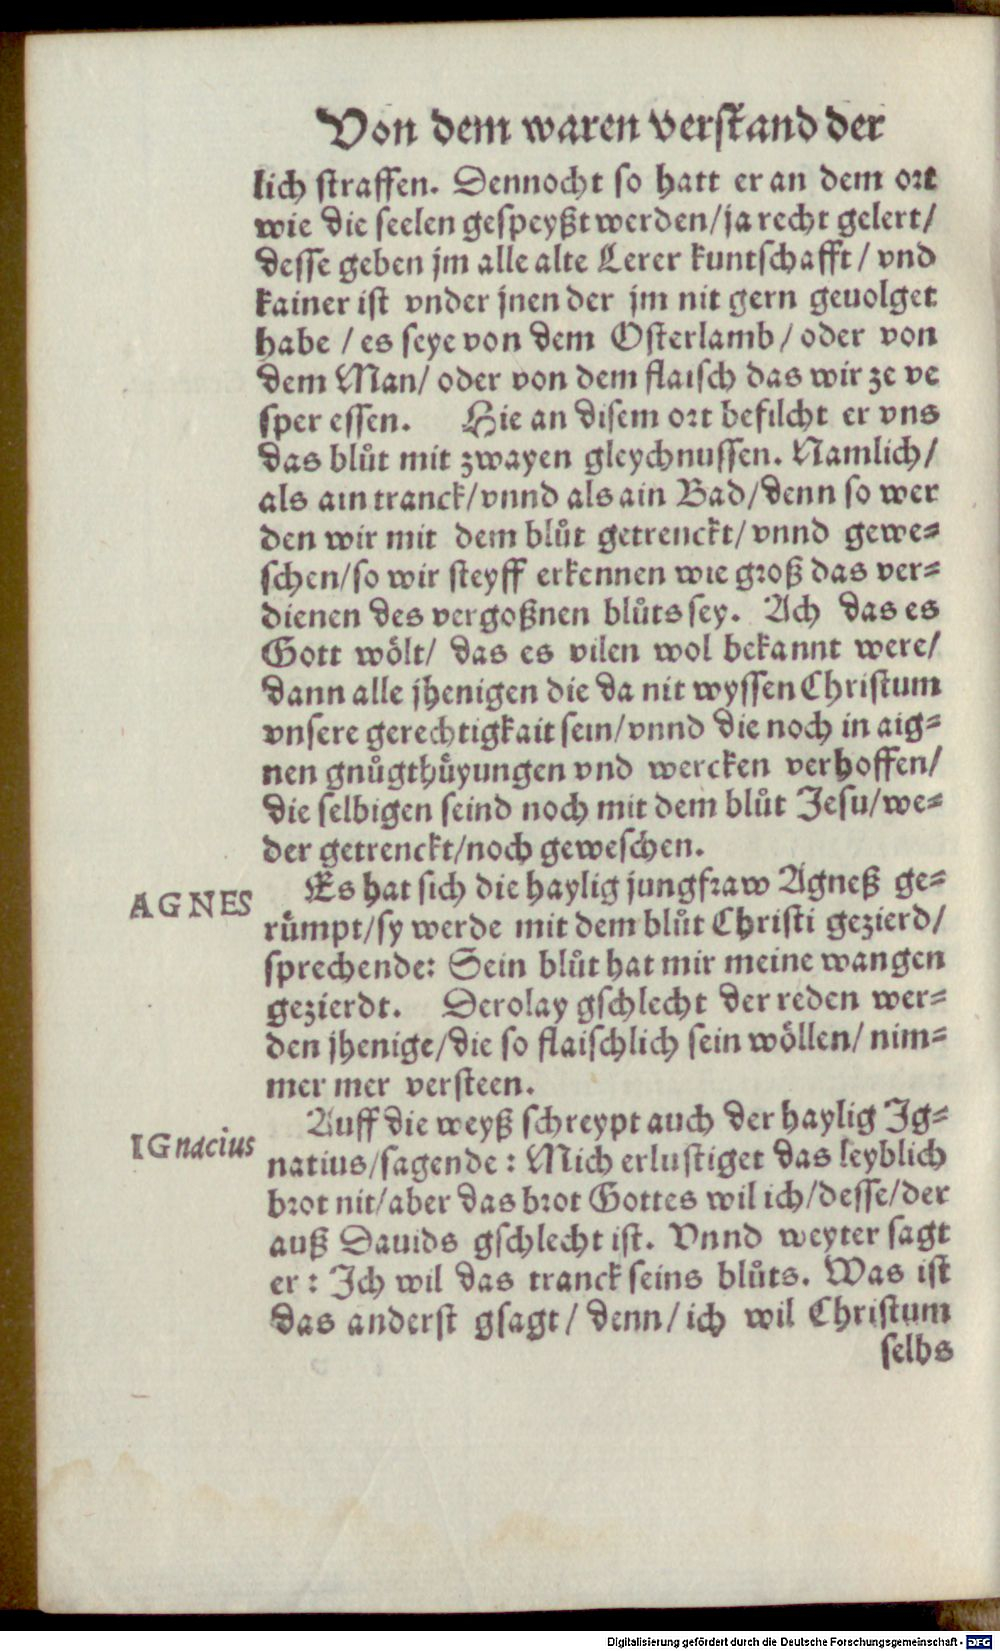 Von dem waren verstand der
lich straffen. Dennocht so hatt er an dem ort
wie die seelen gespeyßt werden/ja recht gelert/
desse geben jm alle alte Lerer kuntschafft / vnd
kainer ist vnder jnen der jm nit gern geuolget
habe / es seye von dem Osterlamb / oder von
dem Man/ oder von dem flaisch das wir ze ve
sper essen. Hie an disem ort befilcht er vns
das blůt mit zwayen gleychnussen. Namlich/
als ain tranck/vnnd als ain Bad/denn so wer
den wir mit dem blůt getrenckt/vnnd gewe⸗
schen/so wir steyff erkennen wie groß das ver⸗
dienen des vergoßnen blůts sey. Ach das es
Gott wölt/ das es vilen wol bekannt were/
dann alle jhenigen die da nit wyssen Christum
vnsere gerechtigkait sein/vnnd die noch in aig⸗
nen gnůgthůyungen vnd wercken verhoffen/
die selbigen seind noch mit dem blůt Jesu/we⸗
der getrenckt/noch geweschen.
AGNES
Es hat sich die haylig jungfraw Agneß ge⸗
růmpt/sy werde mit dem blůt Christi gezierd/
sprechende: Sein blůt hat mir meine wangen
gezierdt. Derolay gschlecht der reden wer⸗
den jhenige/die so flaischlich sein wöllen/ nim⸗
mer mer versteen.
IGnacius
Auff die weyß schreypt auch der haylig Ig⸗
natius/sagende: Mich erlustiget das leyblich
brot nit/aber das brot Gottes wil ich/desse/der
auß Dauids gschlecht ist. Vnnd weyter sagt
er: Ich wil das tranck seins blůts. Was ist
das anderst gsagt / denn/ ich wil Christum
selbs
Digitalisierung gefördert durch die Deutsche Forschungsgemeinschaft - DFG